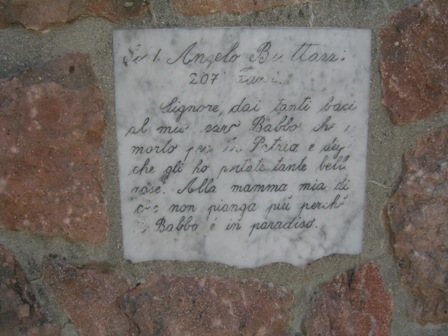 Angelo Bottazzi
207
Signore, dai tanti baci
al mio caro Babbo che è
morto per la Patria e digli
che gli ho portato tante belle
rose. Alla mamma mia dì
che non pianga più perchè
Babbo è in paradiso.